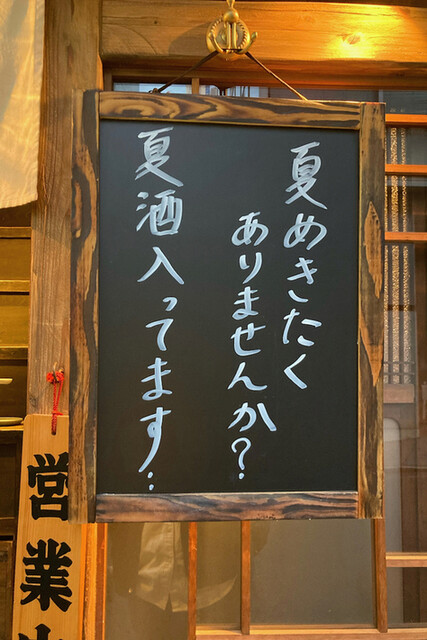 夏めきたく
ありませんか?
夏酒入ってます.
営業